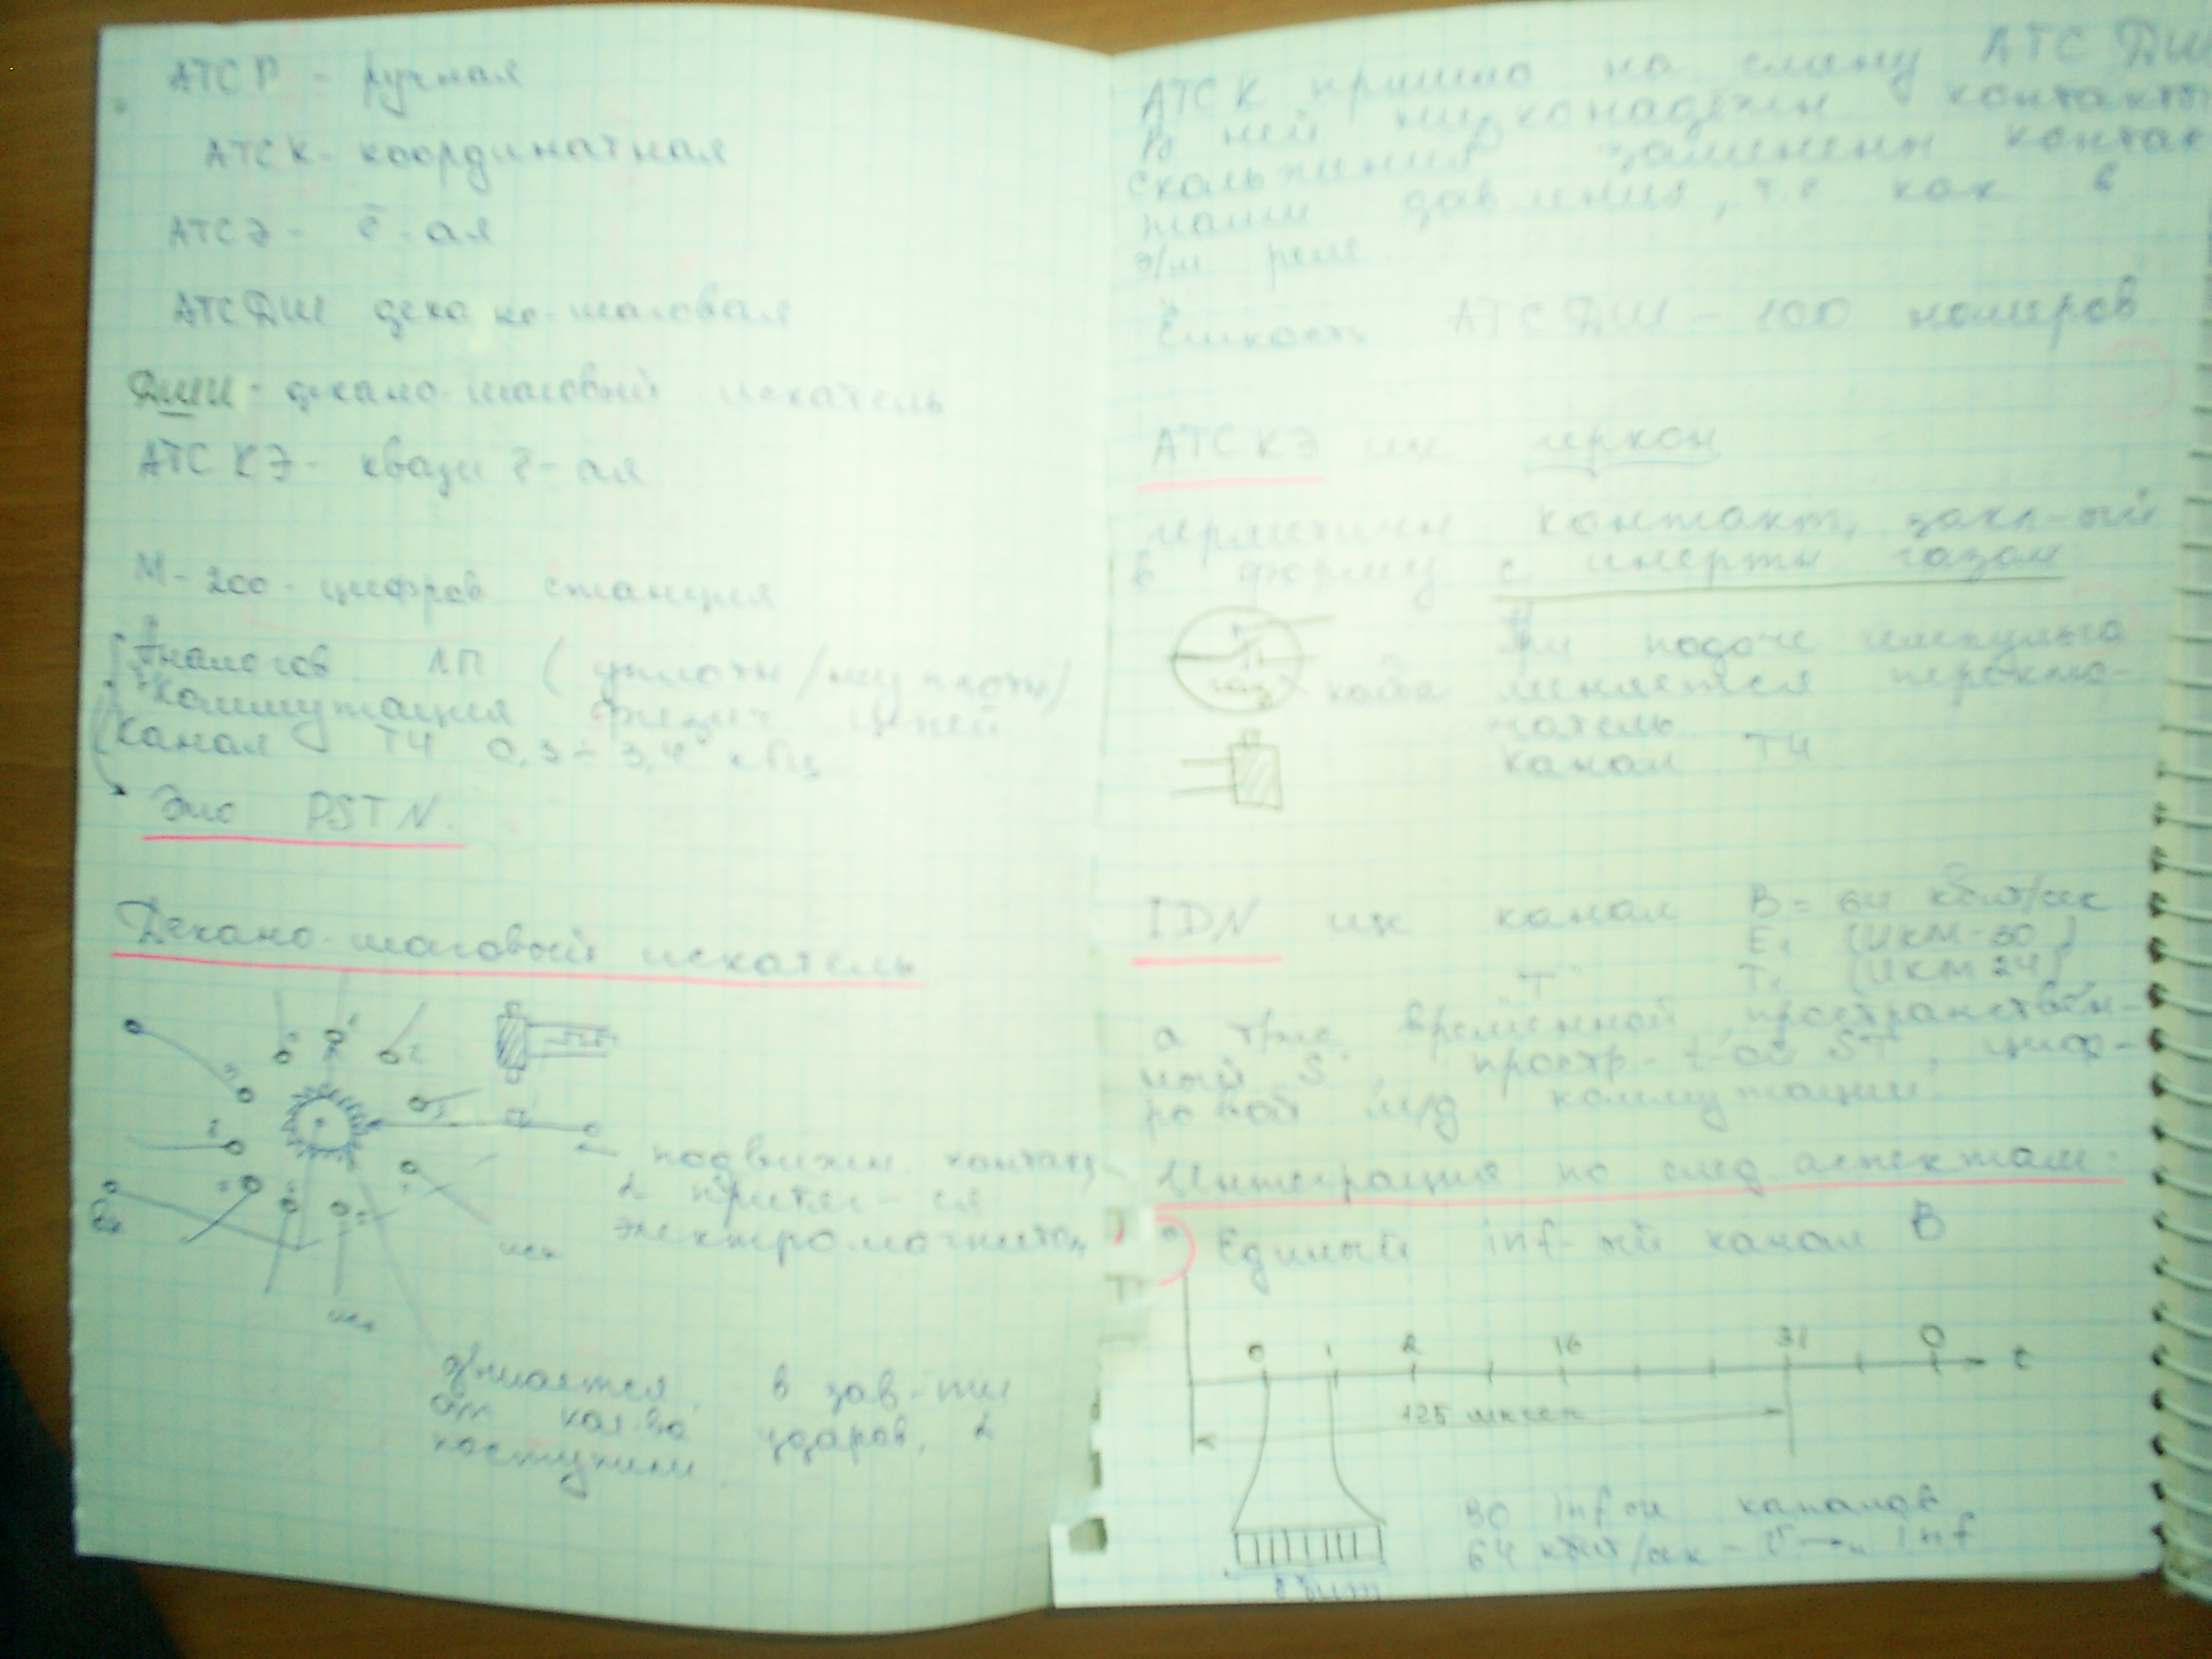 АТС Р - ручная
АТС К - координатная
АТСЭ - ē-ая
АТСДШ декадно-шаговая
ДШИ - декадно-шаговый искатель
АТС КЭ - квази ē-ая
М-200 - цифров станция
Аналогов ЛП (уплотн/неуплотн)
Коммутация физич цепей
Канал ТЧ 0,3 ÷ 3,4 кГц
Это PSTN.
Декадно-шаговый искатель
подвижн. контакт
2 притяг-ся
электромагнитом
иск
Вх
иск
движется, в зав-ти
от кол-ва ударов, 2
поступили
АТС К пришло на смену АТС ДШ
В ней низконадёжн контакты
скольжения заменены контак
тами давления, т.е как в
э/м реле
Ёмкость АТСДШ - 100 номеров
АТС КЭ исп геркон
герметичн контакт, закл-ый
в форму с инертн газом
При подаче импульса
газ
меняется переклю-
чатель
канал ТЧ
IDN исп канал B = 64 кбит/сек
E1 (ИКМ-30)
"T" T1 (ИКМ 24)
а тже временной, пространствен-
ный S, простр.-t-ой ST, циф-
ровой коммутации
Интеграция по след аспектам:
Единый inf-ый канал B
0 1 2 16 31 0 t
125 мксек
30 inf-х каналов
64 кбит/сек - inf
8 бит